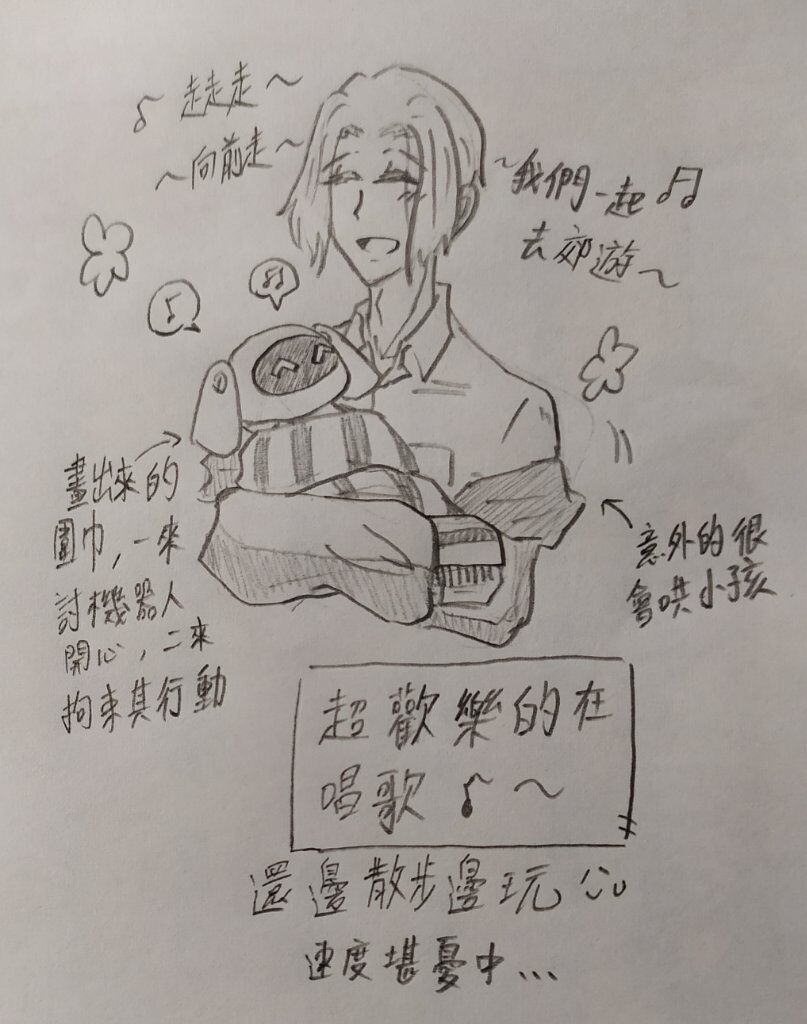 ♪ 走走走～
～向前走～
～我們一起♫
去郊遊～
♪
♫
畫出來的
圍巾，一來
討機器人
開心，二來
拘束其行動
意外的很
會哄小孩
超歡樂的在
唱歌♪～
還邊散步邊玩
速度堪憂中...